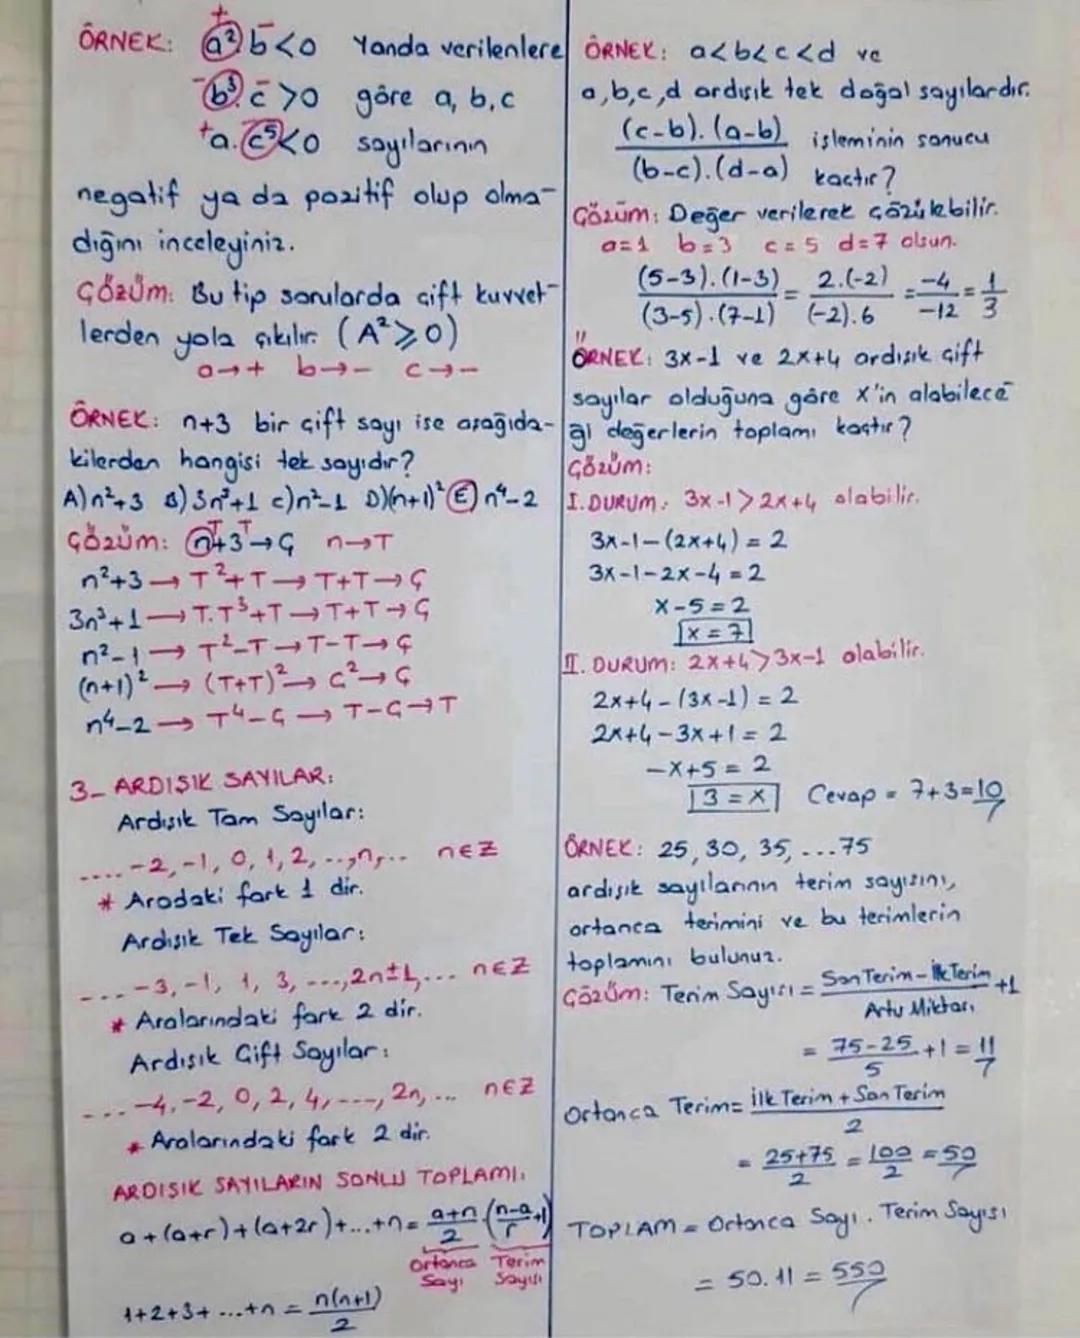 ÖRNEK: a² b<0 Yanda verilenlere
b³.c>0 göre a, b, c
a.c⁵<0 sayılarının
negatif ya da pozitif olup olma-
dığını inceleyiniz.
ÇÖZÜM: Bu tip sorularda çift kuvvet-
lerden yola çıkılır. (A²≥0)
a→+ b→- c→-
ÖRNEK: n+3 bir çift sayı ise aşağıda-
kilerden hangisi tek sayıdır?
A) n²+3 B) 3n³+1 C) n²-1 D) (n+1)² E) n⁴-2
ÇÖZÜM: n+3→Ç n→T
n²+3→T²+T→T+T→Ç
3n³+1→T.T³+T→T+T→Ç
n²-1→T²-T→T-T→Ç
(n+1)²→(T+T)²→Ç²→Ç
n⁴-2→T⁴-Ç→T-Ç→T
3- ARDIŞIK SAYILAR:
Ardışık Tam Sayılar:
....-2,-1, 0, 1, 2, ..,n,.. n∈Z
* Aradaki fark 1 dir.
Ardışık Tek Sayılar:
...-3,-1, 1, 3, ...,2n±1,... n∈Z
* Aralarındaki fark 2 dir.
Ardışık Çift Sayılar:
...-4,-2, 0, 2, 4, ..., 2n, ... n∈Z
* Aralarındaki fark 2 dir.
ARDIŞIK SAYILARIN SONLU TOPLAMI:
a+(a+r)+(a+2r)+...+n = (a+n)/2 ((n-a)/r +1)
Ortanca Terim
Sayı Sayısı
1+2+3+...+n = n(n+1)/2
ÖRNEK: a<b<c<d ve
a,b,c,d ardışık tek doğal sayılardır.
(c-b).(a-b)/(b-c).(d-a) işleminin sonucu
kaçtır?
Çözüm: Değer verilerek çözülebilir.
a=1 b=3 c=5 d=7 olsun.
(5-3).(1-3)/(3-5).(7-1) = 2.(-2)/(-2).6 = -4/-12 = 1/3
ÖRNEK: 3x-1 ve 2x+4 ardışık çift
sayılar olduğuna göre x'in alabilece-
ği değerlerin toplamı kaçtır?
ÇÖZÜM:
I. DURUM: 3x-1>2x+4 olabilir.
3x-1-(2x+4)=2
3x-1-2x-4=2
x-5=2
x=7
II. DURUM: 2x+4>3x-1 olabilir.
2x+4-(3x-1)=2
2x+4-3x+1=2
-x+5=2
3=x Cevap = 7+3=10
ÖRNEK: 25, 30, 35, ...75
ardışık sayılarının terim sayısını,
ortanca terimini ve bu terimlerin
toplamını bulunuz.
ÇÖZÜM: Terim Sayısı = Son Terim - İlk Terim/Artış Miktarı +1
= 75-25/5 +1 = 11
Ortanca Terim= İlk Terim + Son Terim/2
= 25+75/2 = 100/2 = 50
TOPLAM = Ortanca Sayı . Terim Sayısı
= 50.11 = 550